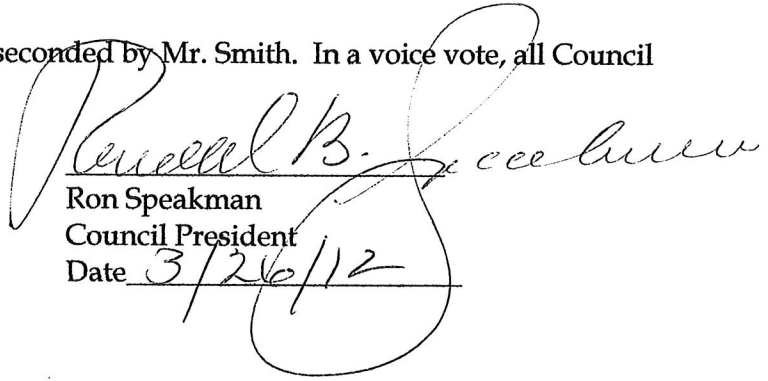 seconded by Mr. Smith. In a voice vote, all Council
Ronald B. Speakman
Ron Speakman
Council President
Date 3/26/12